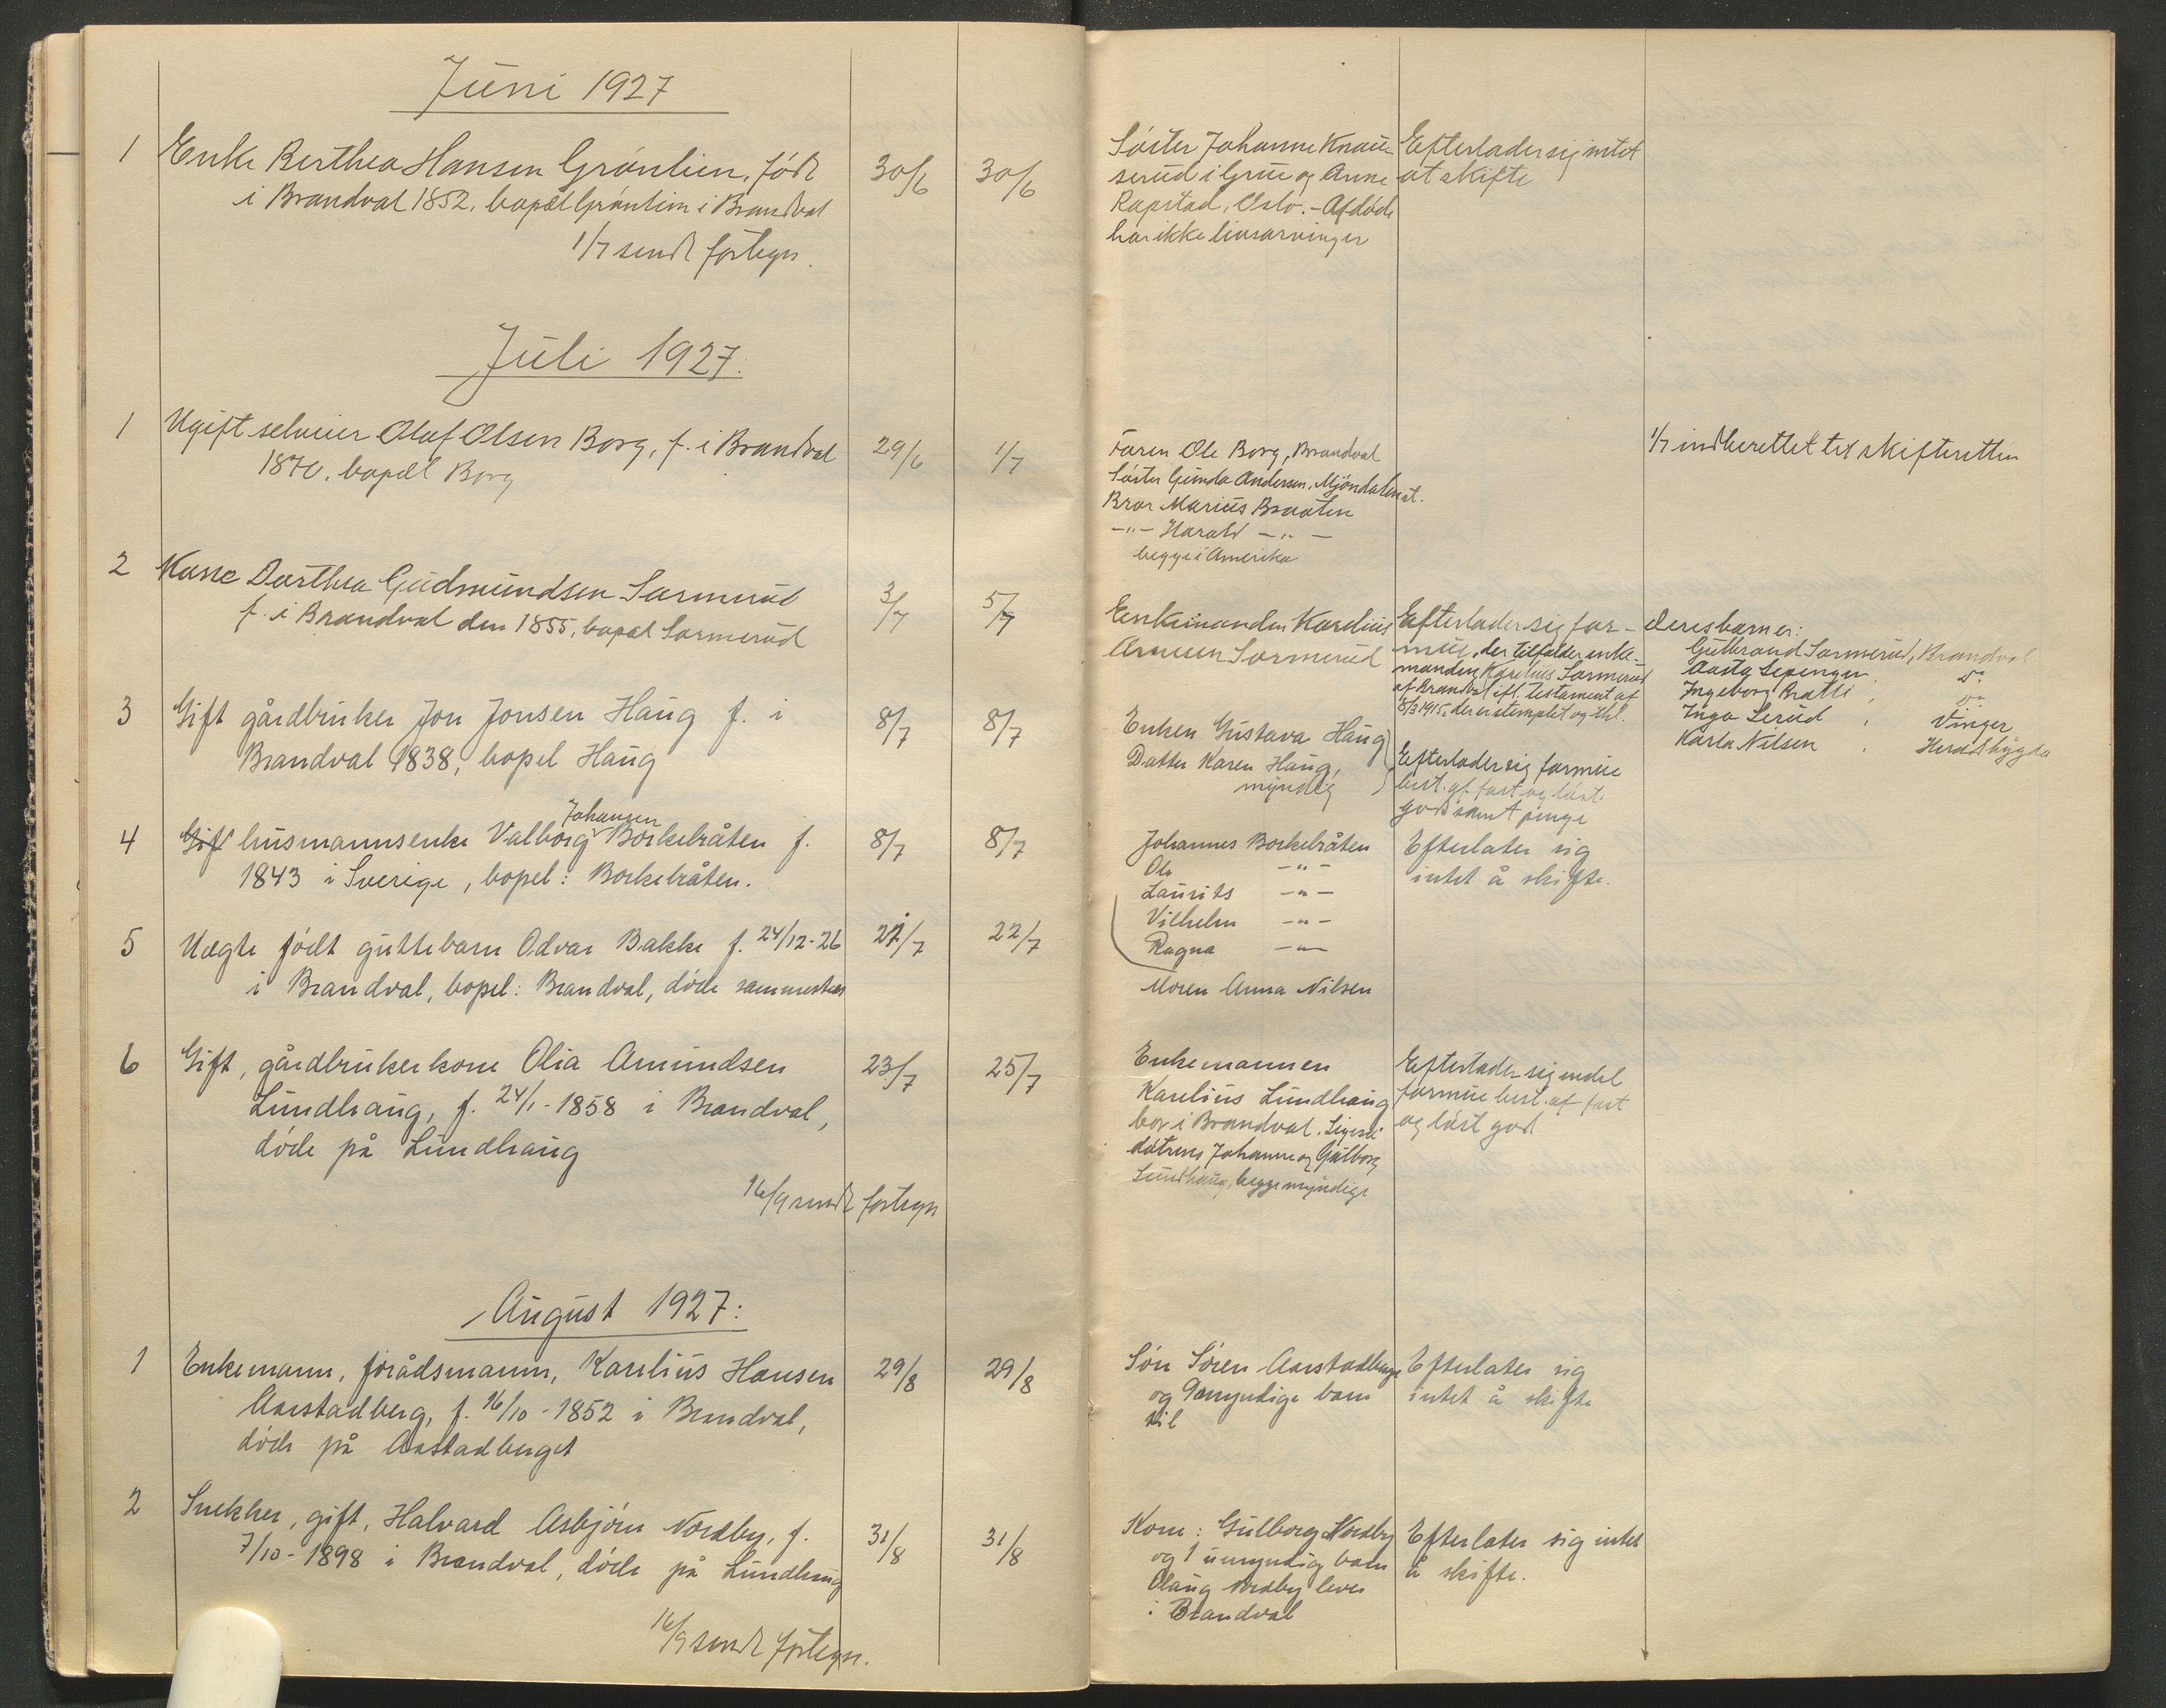 Juni 1927
1 Enke Berthea Hansen Grönlien, född
i Brandval 1852, bopæl Grönlien i Brandval
30/6 30/6
1/7 sendt fortegn.
Söster Johanne Knau-
serud i Grue og Anne
Rapstad, Oslo. - Afdöde
har ikke livsarvinger
Efterlader sig intet
at skifte
Juli 1927.
1 Ugift selveier Olaf Olsen Borg, f. i Brandval
1870. bopæl Borg
29/6 1/7
Faren Ole Borg, Brandval
Söster Gunda Andersen, Mjöndalen st.
Bror Marius Braaten
-"- Harald -"-
begge i Amerika
1/7 indberettet til skifteretten
2 Kone Dorthea Gudmundsen Sormerud
f. i Brandval den 1855, bopæl Sormerud
3/7 5/7
Enkemanden Karelius
Arnesen Sormerud
Efterlader sig for-
mue, der tilfalder enke-
manden Karelius Sormerud
af Brandval ifl. testament af
8/3 1915, der er stemplet og thl.
Deres barn er:
Gulbrand Sormerud, Brandval
Aasta Sepenger, do
Ingeborg Bratli, do
Inga Lerud, Vinger
Karla Nilsen,
3 Gift gårdbruker Jon Jonsen Haug f. i
Brandval 1838, bopel Haug
8/7 8/7
Enken Gustava Haug
Datter Karen Haug,
myndig
Efterlader sig formue
best. af fast og löst
gods samt penge
4 Gift husmannsenke Valborg Johansen Borkelråten f.
1843 i Sverige, bopel: Borkelråten.
8/7 8/7
Johannes Borkelråten
Ole -"-
Laurits -"-
Vilhelm -"-
Ragna -"-
Efterlater sig
intet å skifte.
5 Uægte födt guttebarn Odvar Bakke f. 24/12-26
i Brandval, bopel: Brandval, döde sammesteds
21/7 22/7
Moren Anna Nilsen
6 Gift, gårdbrukerkone Olia Amundsen
Lundhaug, f. 24/1-1858 i Brandval,
döde på Lundhaug
23/7 25/7
16/9 sendt fortegn
Enkemannen
Karelius Lundhaug
bor i Brandval. Ligeså
dötrene Johanne og Gulborg
Lundhaug, begge myndige
Efterlader sig endel
formue best. af fast
og löst gods
August 1927:
1 Enkemann, forådsmann, Karelius Hansen
Aarstadberg, f. 16/10-1852 i Brandval,
döde på Aastadberget
29/8 29/8
Sön Sören Aarstadberget
og 9 myndige barn
til
Efterlater sig
intet å skifte
2 Snekker, gift, Halvard Asbjörn Nordby, f.
7/10-1898 i Brandval, döde på Lundhaug
31/8 31/8
16/9 sendt fortegn.
Kone: Gulborg Nordby
og 1 umyndig barn
Olaug Nordby lever
i Brandval
Efterlater sig intet
å skifte.